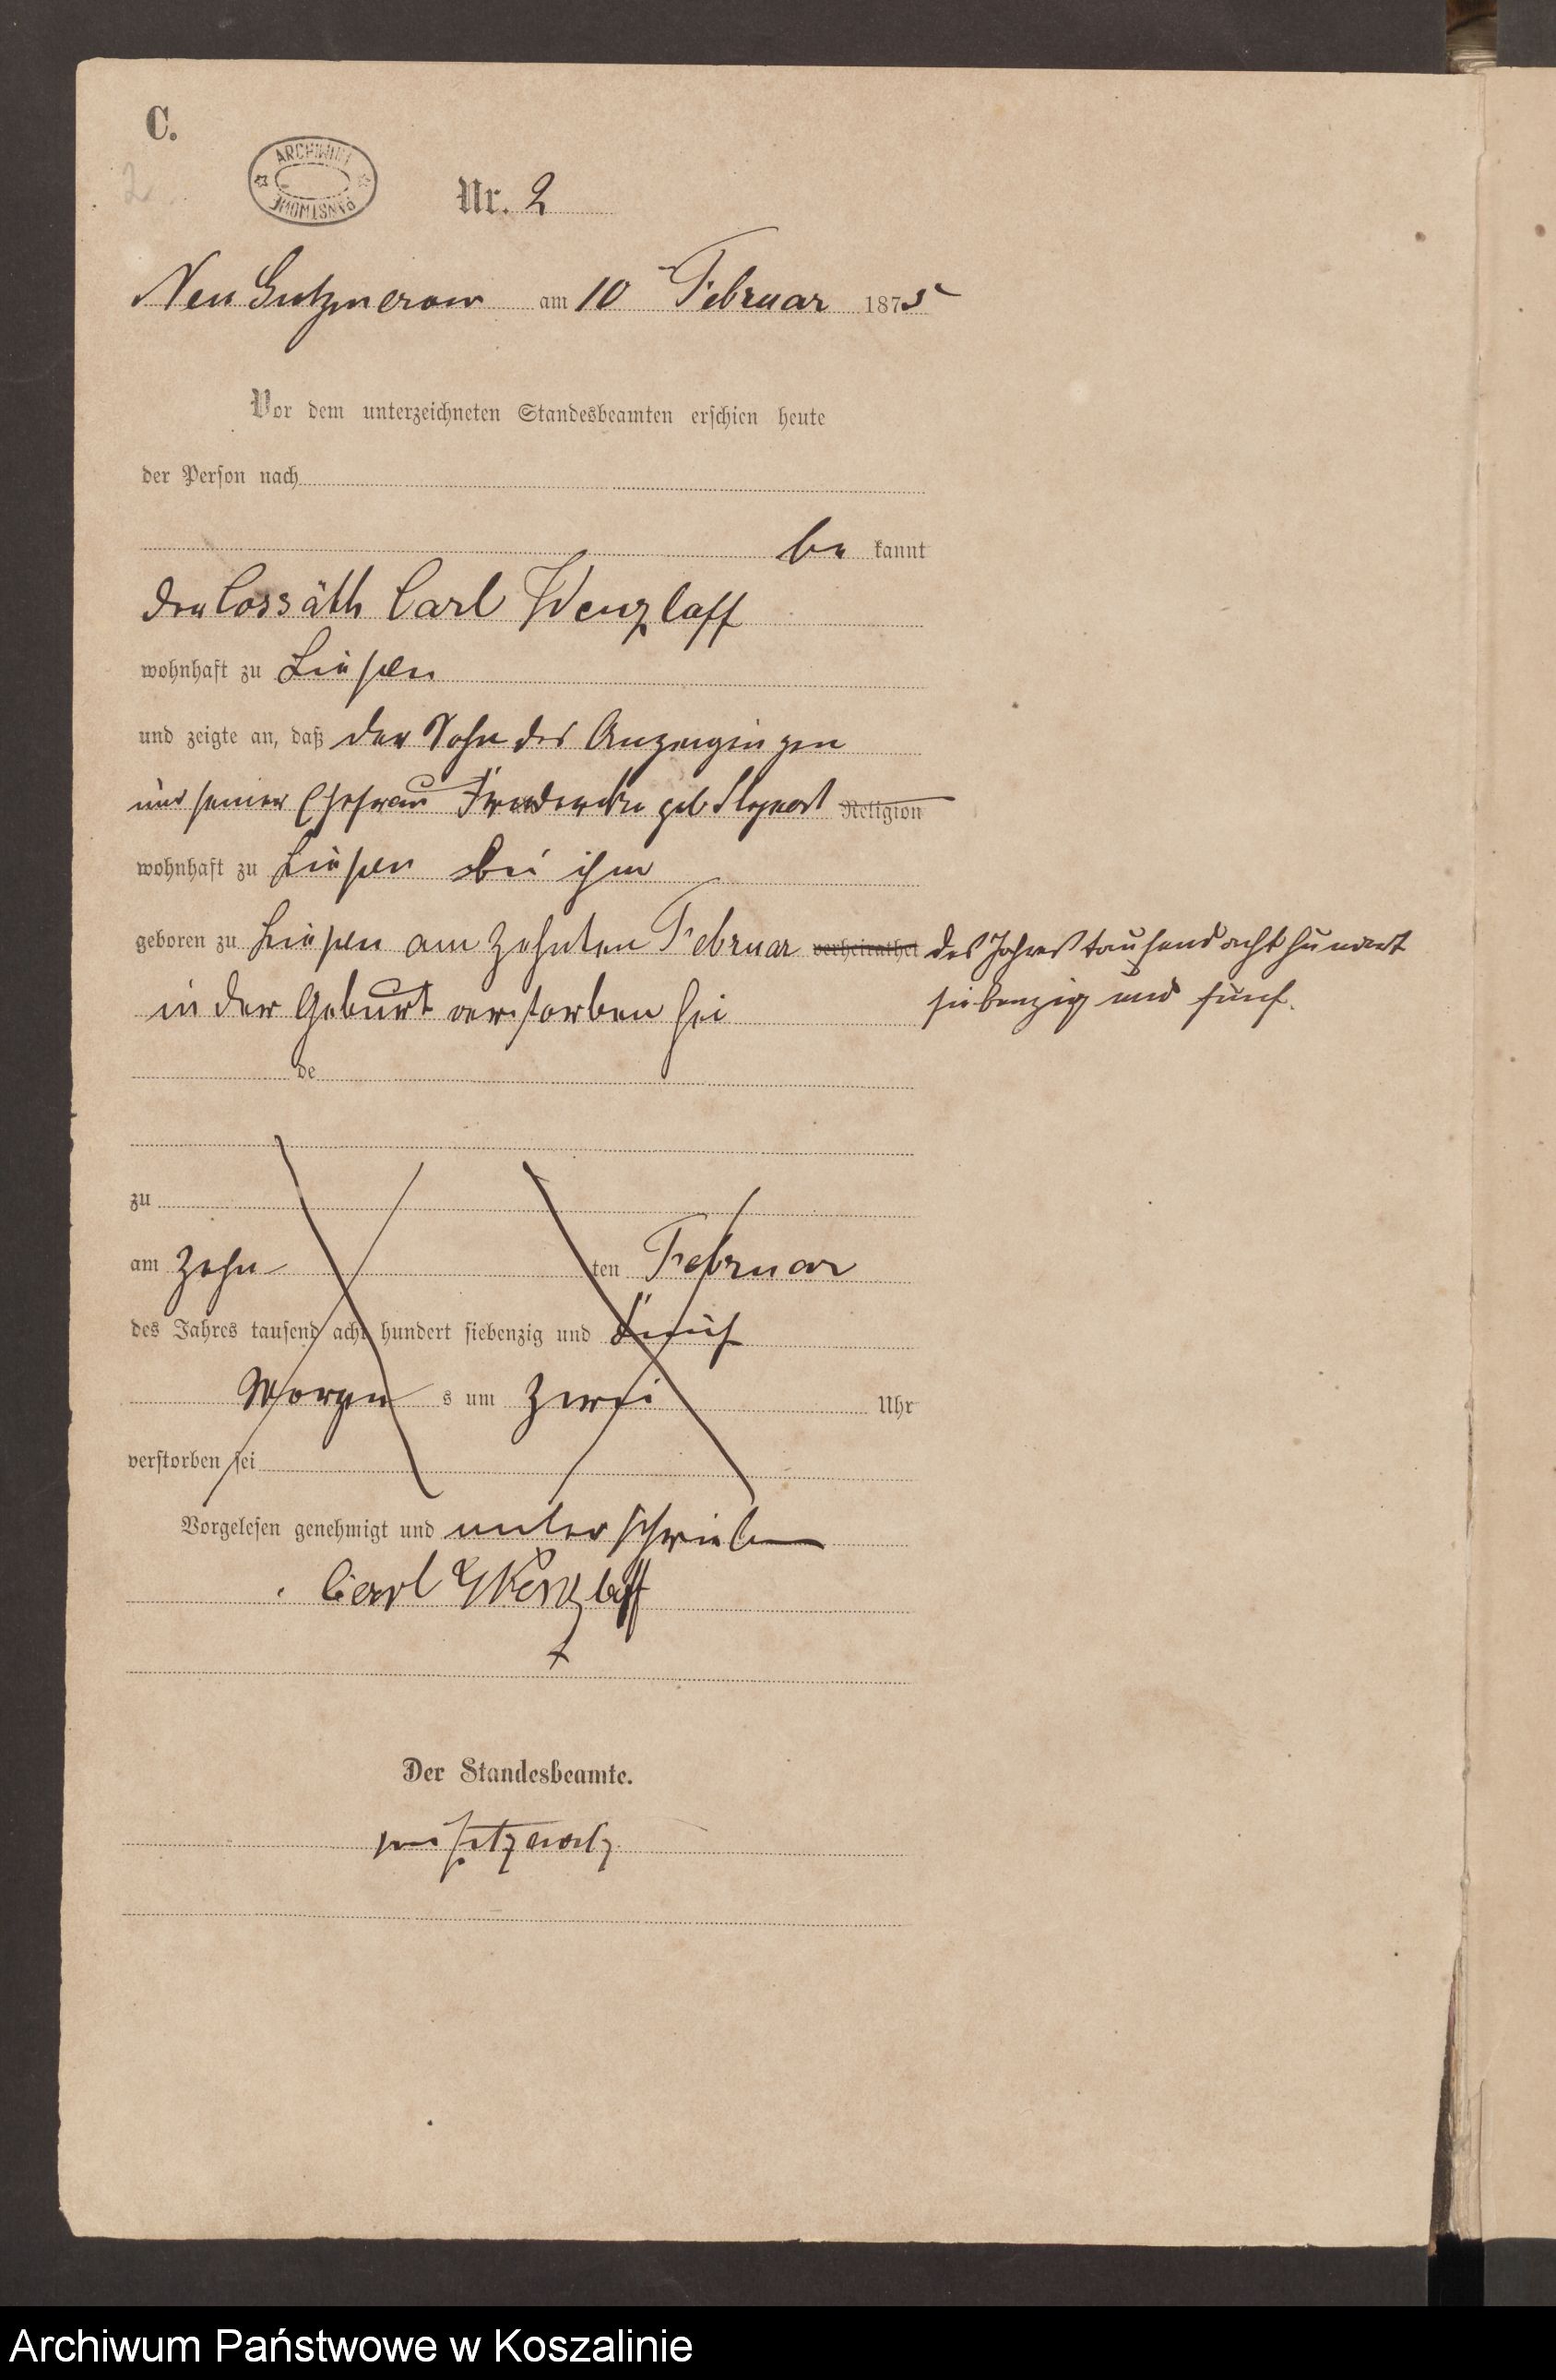 C.
2
ARCHIWUM PAŃSTWOWE
Nr. 2
Neu Gutzmerow am 10 Februar 1875
Vor dem unterzeichneten Standesbeamten erschien heute
der Person nach
be kannt
der Cossäth Carl Wenzlaff
wohnhaft zu Liepen
und zeigte an, daß der Sohn des Anzeigingen
und seiner Ehefrau Friederike geb. Religion
wohnhaft zu Liepen bei ihm
geboren zu Liepen am zehnten Februar verheirathet des Jahres tausend acht hundert
siebenzig und fünf.
in der Geburt verstorben sei
de
zu
am zehn ten Februar
des Jahres tausend acht hundert siebenzig und Fünf
Morgen s um zwei Uhr
verstorben sei
Vorgelesen genehmigt und unterschrieben
Carl Wenzlaff
Der Standesbeamte.
Archiwum Państwowe w Koszalinie